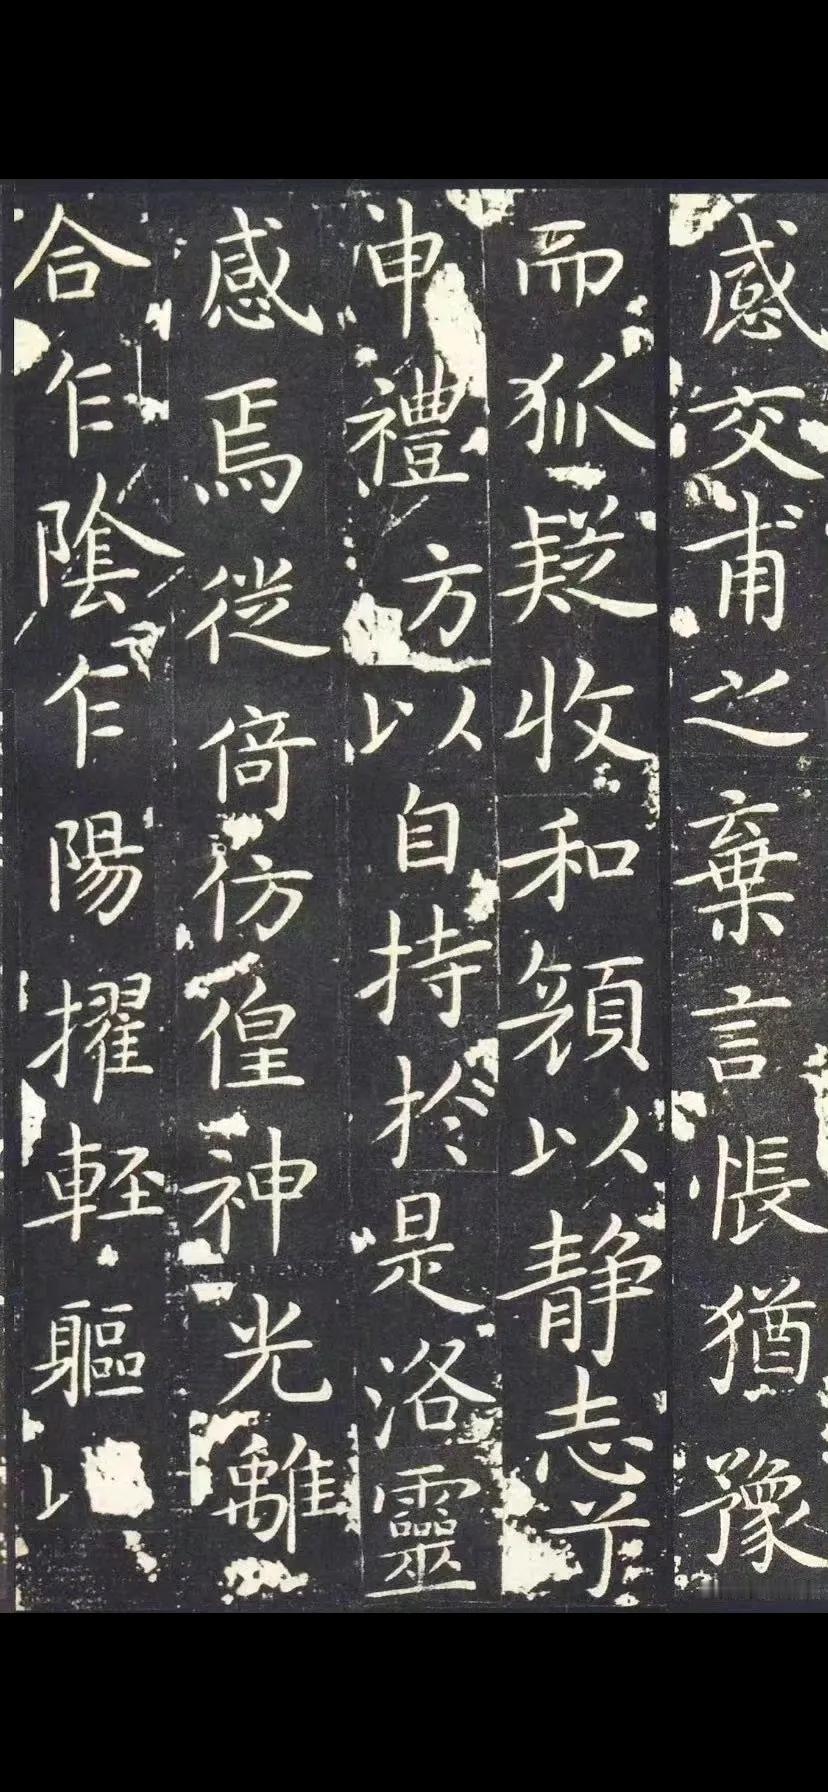 感交甫之棄言悵猶豫
而狐疑收和顔以静志兮
申禮方以自持於是洛靈
感焉徙倚彷徨神光離
合乍陰乍陽擢輕軀以